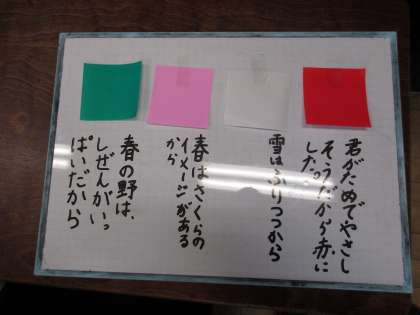 君がためでやさし
そうだから赤に
した。
雪はふりつつから
春はさくらの
イメージがある
から
春の野は、
しぜんがいっ
ぱいだから